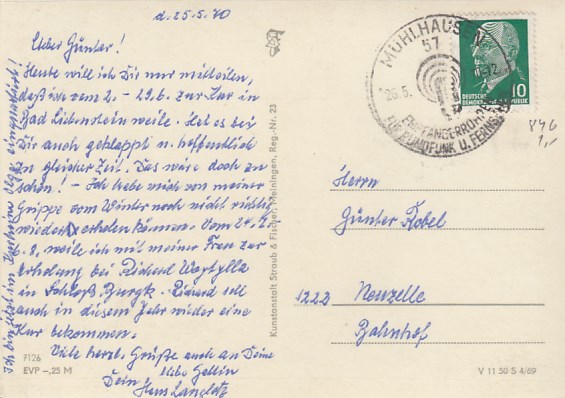 d. 25.5.70
Lieber Günter!
Heute will ich Dir nur mitteilen,
daß wir vom 2. - 29.6. zur Kur in
Bad Liebenstein weile. Ist es bei
Dir auch geklappt u. hoffentlich
in gleicher Zeit. Das wäre doch zu
schön! - Ich habe mich von meiner
Grippe vom Winter noch nicht richtig
wieder erholen können. Vom 24.7.
6.8. weile ich mit meiner Frau zur
Erholung bei Richard
in Schloß Burgk. Richard soll
auch in diesem Jahr wieder eine
Kur bekommen.
Viele herzl. Grüße auch an Deine
liebe Gattin
Dein
Hans
Ich bin jetzt im
7126
EVP -,25 M
Kunstanstalt Straub & Fischer, Meiningen, Reg.-Nr. 23
MÜHLHAUSEN
57
26.5.
EMPFÄNGERRÖHREN
FÜR RUNDFUNK U. FERNSEHEN
DEUTSCHE
DEMOKRATISCHE REPUBLIK
10
846
1,-
Herrn
Günter Kobel
1222 Neuzelle
Bahnhof
V 11 50 S 4/69